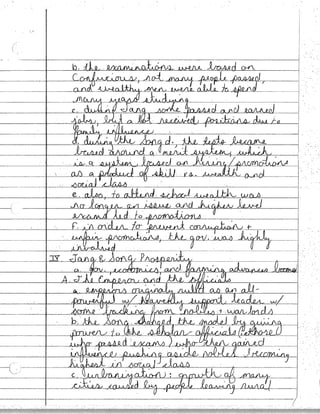 b. the examinations were based on
Confucious, not many people passed,
and wealthy men were able to spend
many years studying
c. during Tang some passed and earned
jobs, but a lot received positions due to
family influence
d. during the Song d., the tests became
based around a "merit system, which
is a system based on hiring/promotions
as a product of skill vs. wealth and
social class
e. also, to attend school wealth was
no longer an issue and higher level
exams led to promotions
f. in order to prevent corruption +
unfair promotions, the gov. was highly
involved
IV. Tang & Song Prosperity
a. gov., economics, and farming advances
A. The Emperor and the officials
a. emperors originally ruled as an all-
powerful w/ heavenly support leader w/
some backing from nobles + warlords
b. the Song changed the model by giving
power to the scholar-officials
who passed exams) who then gained
influence pushing aside nobles becoming
highest in social class
c. (urbanization: growth of many
cities caused by people leaving rural